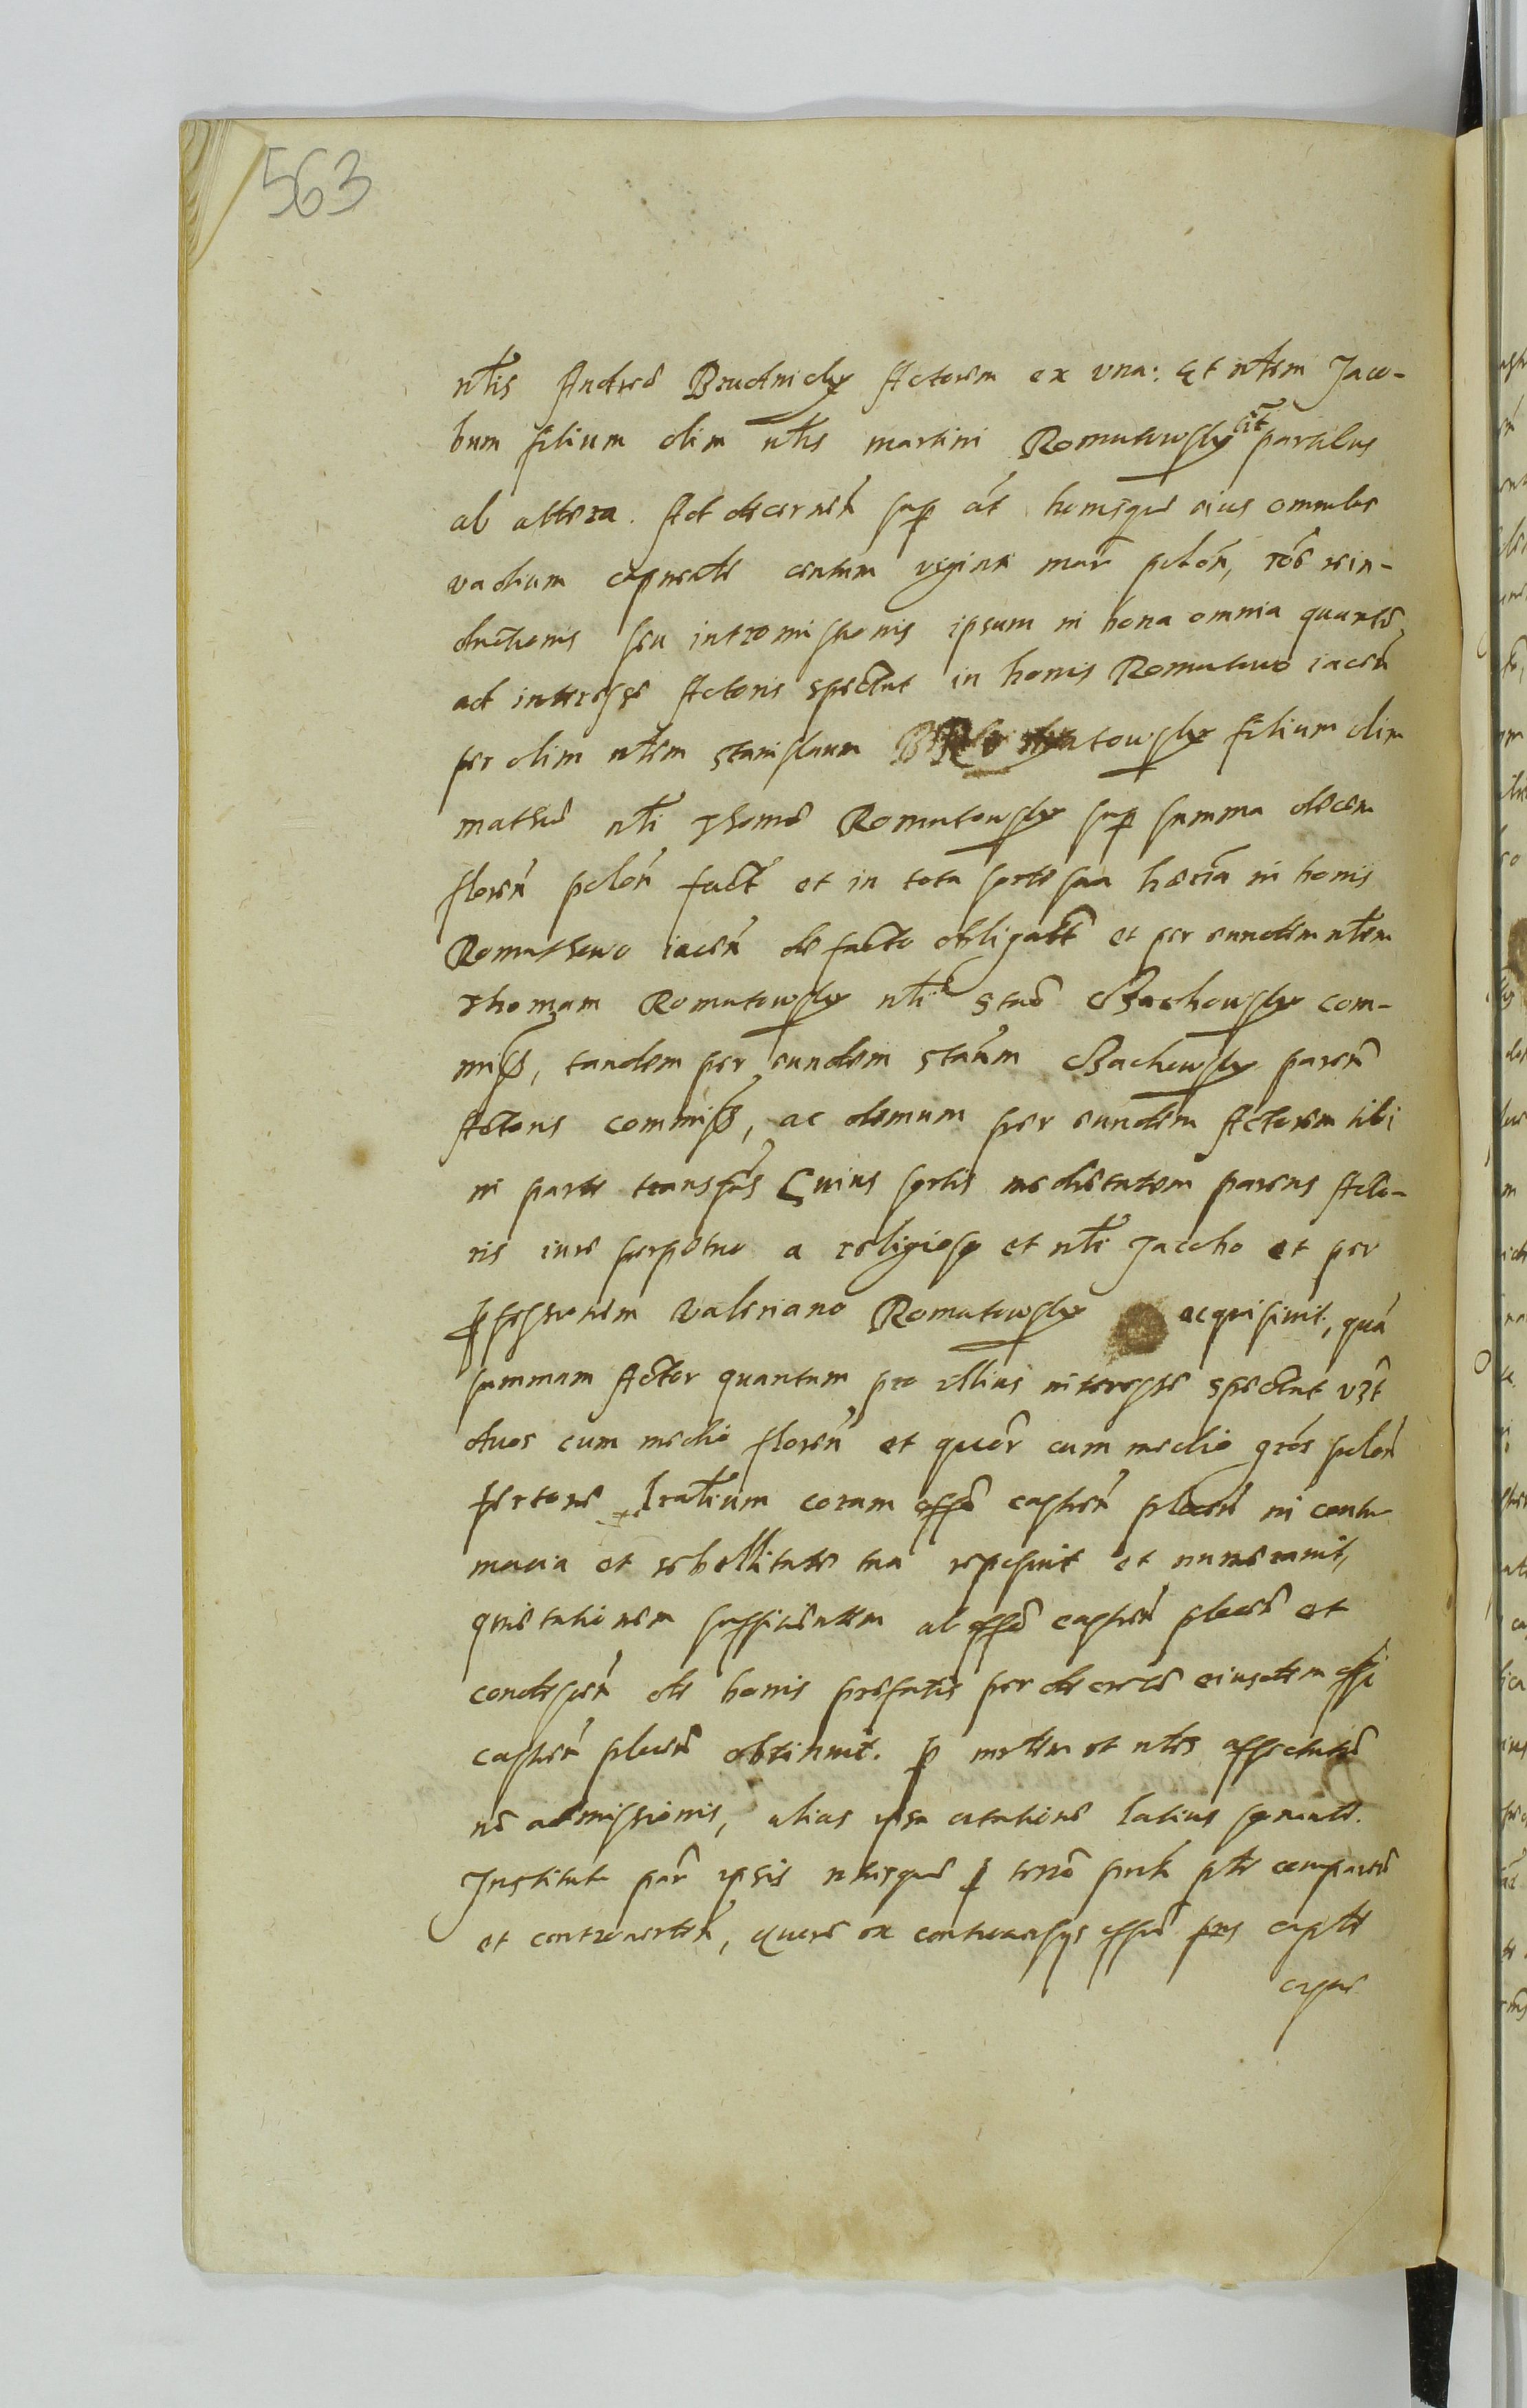 563
nłis Andreæ Brudnicky Actorem ex una: Et nłem Jaco-
bum filium olim nłis Martini Romatowsky Cit partibus
ab altera. Ad decernen̄ sup̱ at bonisque eius omnibus
vadium centum viginti mar̄ polon̄, rōe rein-
ductionis seu intromissionis ipsum in bona omnia
ad interesse Actoris spectant in bonis Romatowo iacen̄
per olim nłem Stanislaum Romatowsky filium olim
Mathiæ nłi Thomæ Romatowsky sup̱ summa decem
floren̄ polon̄ fact et in tota sorte sua in bonis
Romathowo iacen̄ de facto obligatt et per eundem nłem
Thomam Romatowsky nłi Stan Czachowsky com-
miss, tandem per eundem Stan̄um Czachowsky paren̄
Actoris commiss, ac demum per eundem Actorem sibi
in parte transfus Cuius sortis medietatem parens Acto-
ris iure perpetuo a religioso et nłi Jacobo et per
p̱fessionem Valeriano Romatowsky acquisivit, quā
summam Actor quantum pro illius interesse spectat vzt
duos cum medio floren̄ et quor cum medio gros polon̄
coram offō castren̄ plocen̄ in contu
macia et rebellitate tua reposuit et numeravit,
quietationem sufficientem ab offō castren̄ plocen̄ et
condescen̄ de bonis prefatis per decretū eiusdem offi
castren̄ plocen̄ obtinuit. p̱ et nłis
nē admissionis, alias ipsa citatione latius sonante.
Instituta par̄ ipsis utrisque p̱ pnti pte comparen̄
et controverten̄, Quare ex controversys offm pns capte